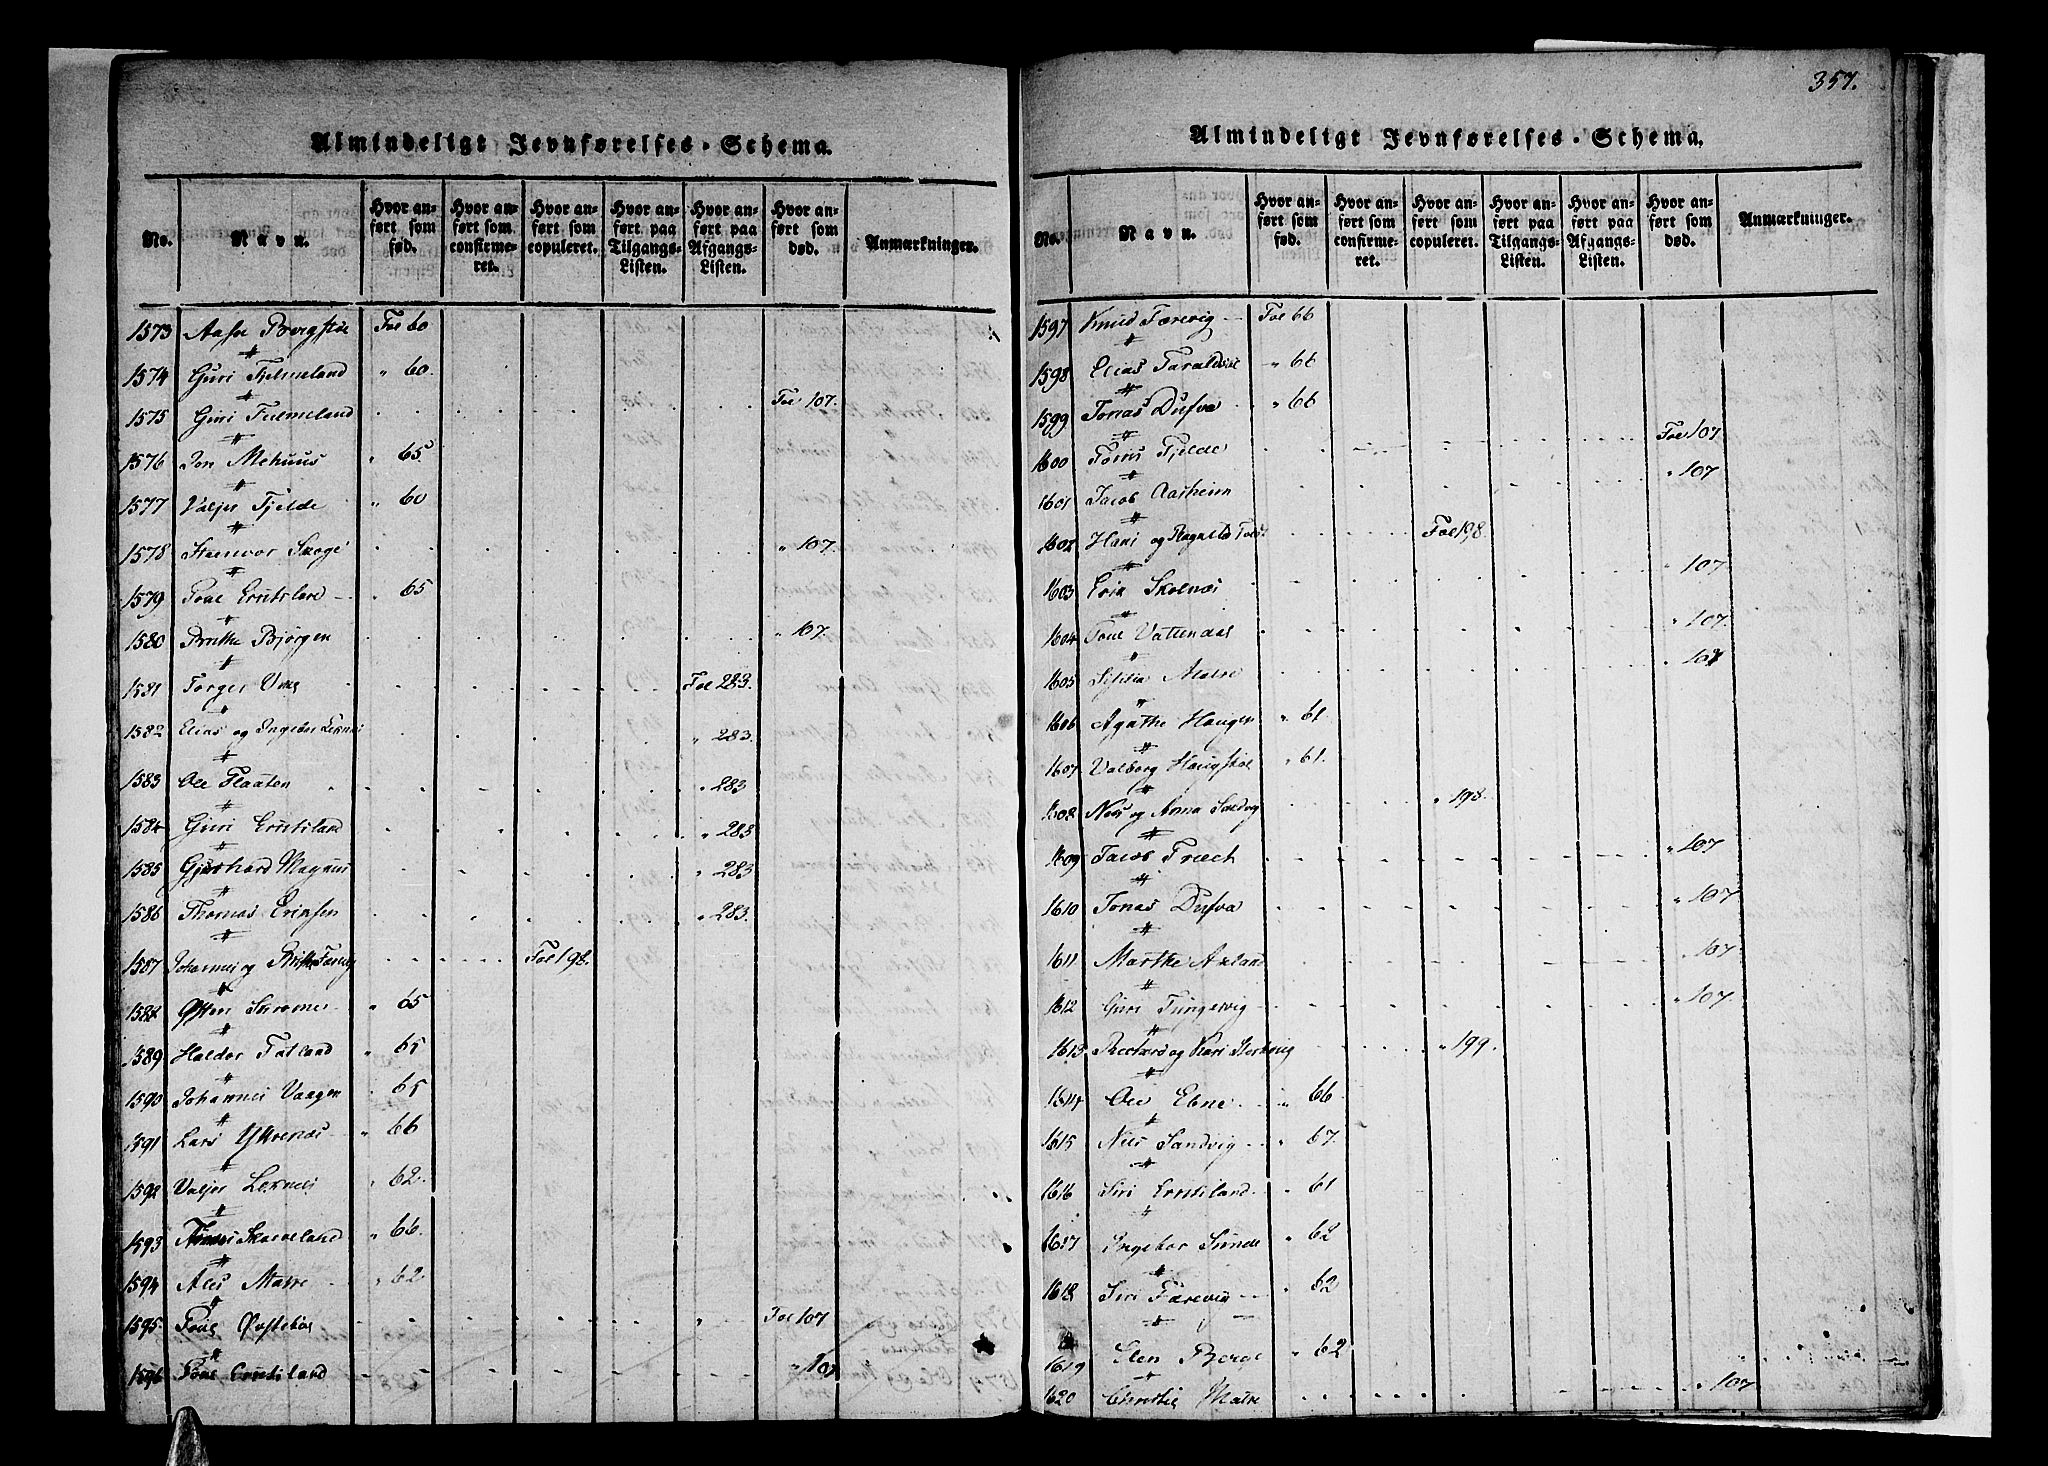 357.
Almindeligt Jevnførelses-Schema.
No. Navn. Hvor anført som fød. Hvor anført som confirmeret. Hvor anført som copuleret. Hvor anført paa Tilgangs-Listen. Hvor anført paa Afgangs-Listen. Hvor anført som død. Anmærkninger.
1573 Aase Bergstøe Fol 60
1574 Guri Fjelmeland " 60.
1575 Guri Fielmeland Fol 107.
1576 Jon Mehuus " 65
1577 Valjer Fjelde " 60
1578 Steenvor Skoge " 107.
1579 Poul Ersesland " 65
1580 Brithe Bjørgen " 107.
1581 Torger Fol 283.
1582 Elias og Ingebor " 283.
1583 Ole Flaaten " 283
1584 Guri " 283
1585 Gjerhard Magnus " 283
1586 Thomas Eriksen " 283.
1587 Johannes og Brithe Fol 198.
1588 Østen " 65
1589 Haldor Fatland " 65
1590 Johannes Vaagen " 65
1591 Lars Yttrenæs " 66
1592 Valjer Leknes " 62.
1593 Skarveland " 66.
1594 Ales Matre " 62.
1595 Poul Østebøe Fol 107
1596 Poul " 107
Almindeligt Jevnførelses-Schema.
No. Navn. Hvor anført som fød. Hvor anført som confirmeret. Hvor anført som copuleret. Hvor anført paa Tilgangs-Listen. Hvor anført paa Afgangs-Listen. Hvor anført som død. Anmærkninger.
1597 Knud Farevig Fol 66
1598 Elias Taraldsøe " 66
1599 Jonas Dufva " 66
1600 Fjelde Fol 107
1601 Jacob Aasheim " 107
1602 Hans og Ragnild Fol 198.
1603 Erik Skolnæs " 107
1604 Poul Vattendal " 107.
1605 Matre " 107
1606 Agathe Haugen " 61
1607 Valborg Haugstøl " 61.
1608 Niels og Anna Sandvig " 198.
1609 Jacob Træet " 107
1610 Jonas Dufva " 107
1611 Marthe Axland " 107
1612 Guri Tungesvig " 107
1613 og Kari " 199.
1614 Ole Ebne " 66
1615 Niels Sandvig " 67
1616 Siri " 61
1617 Ingebor Sunde " 62
1618 Siri Farevig " 62
1619 Elen Berge " 62
1620 Christie Matre " 107